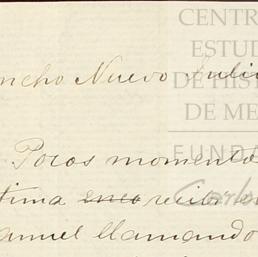 CENTR
ESTUD
DE HIST
DE ME
FUNDA
Carlos
ncho Nuevo Julio
Pocos momento
tima enco recibi
anuel llamando